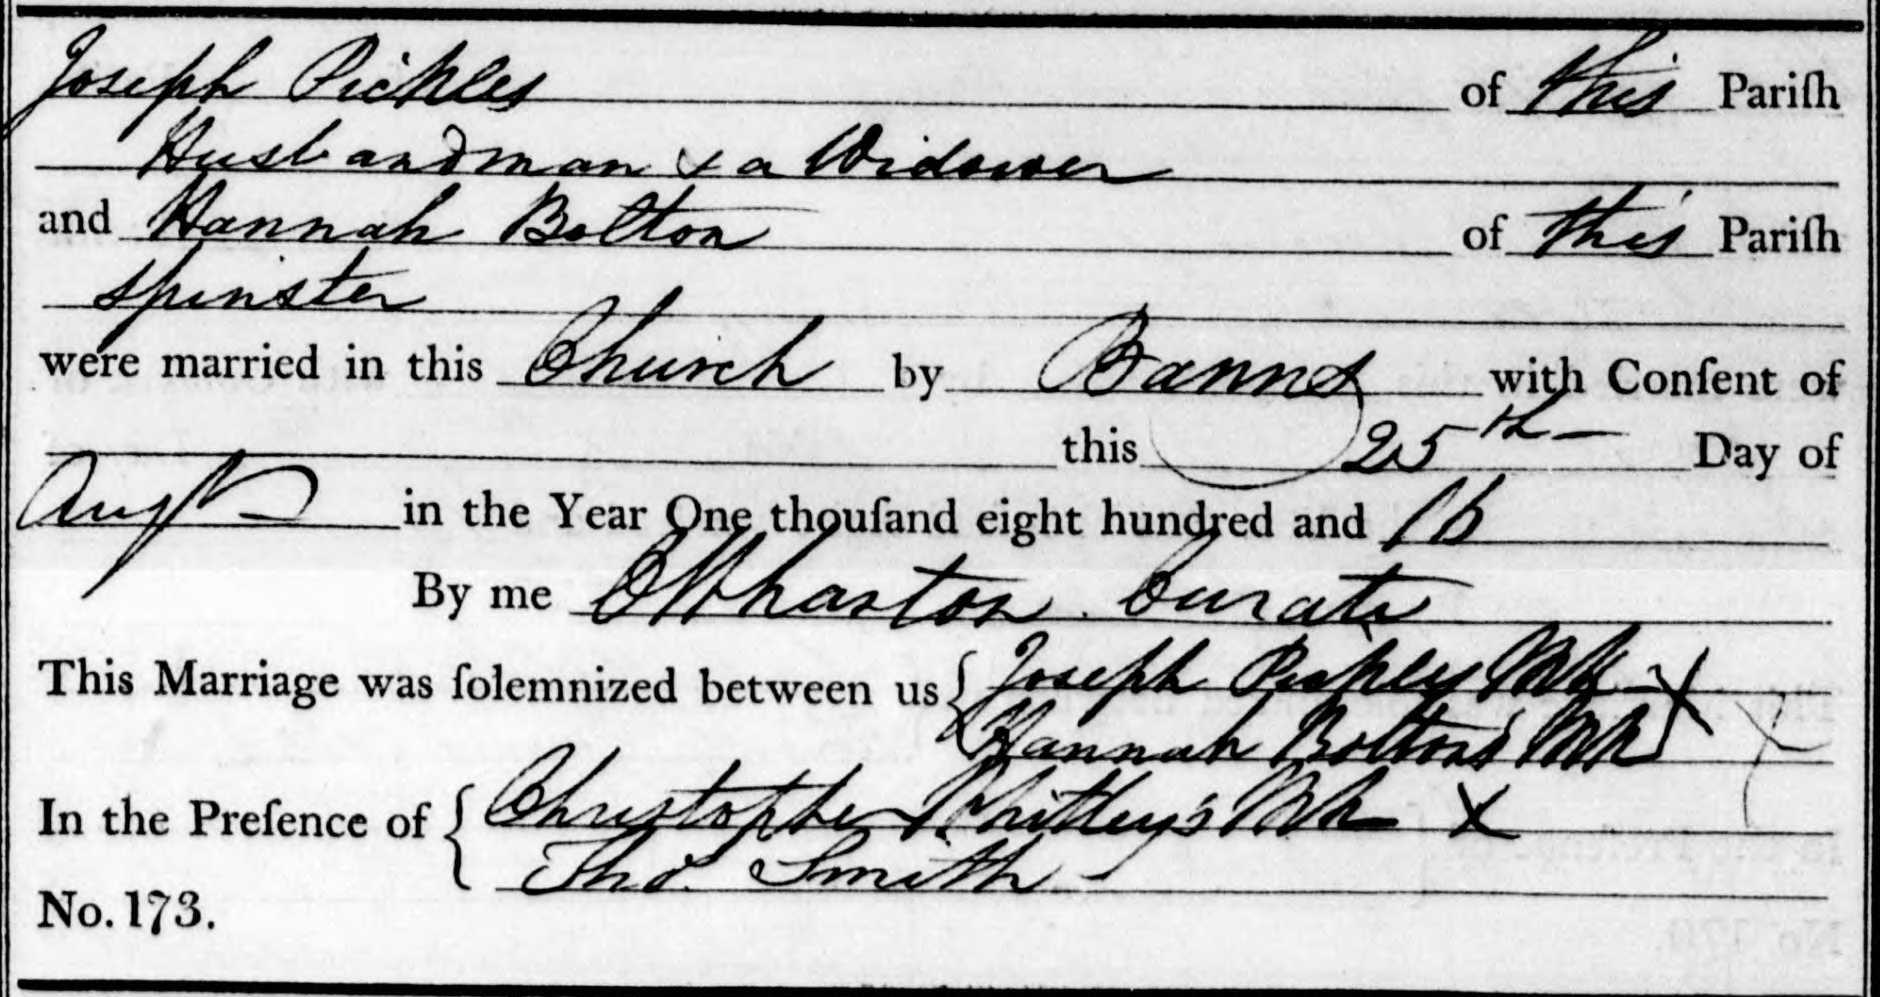 Joseph Pickles of this Pariſh
Husbandman & a Widower
and Hannah Bolton of this Pariſh
Spinster
were married in this Church by Banns with Conſent of
this 25th Day of
Augt in the Year One thouſand eight hundred and 16
By me C Wharton Curate
This Marriage was ſolemnized between us { Joseph Pickles Mk X
Hannah Bolton's Mk X
In the Preſence of { Christopher Whitley's Mk X
Thos. Smith
No. 173.